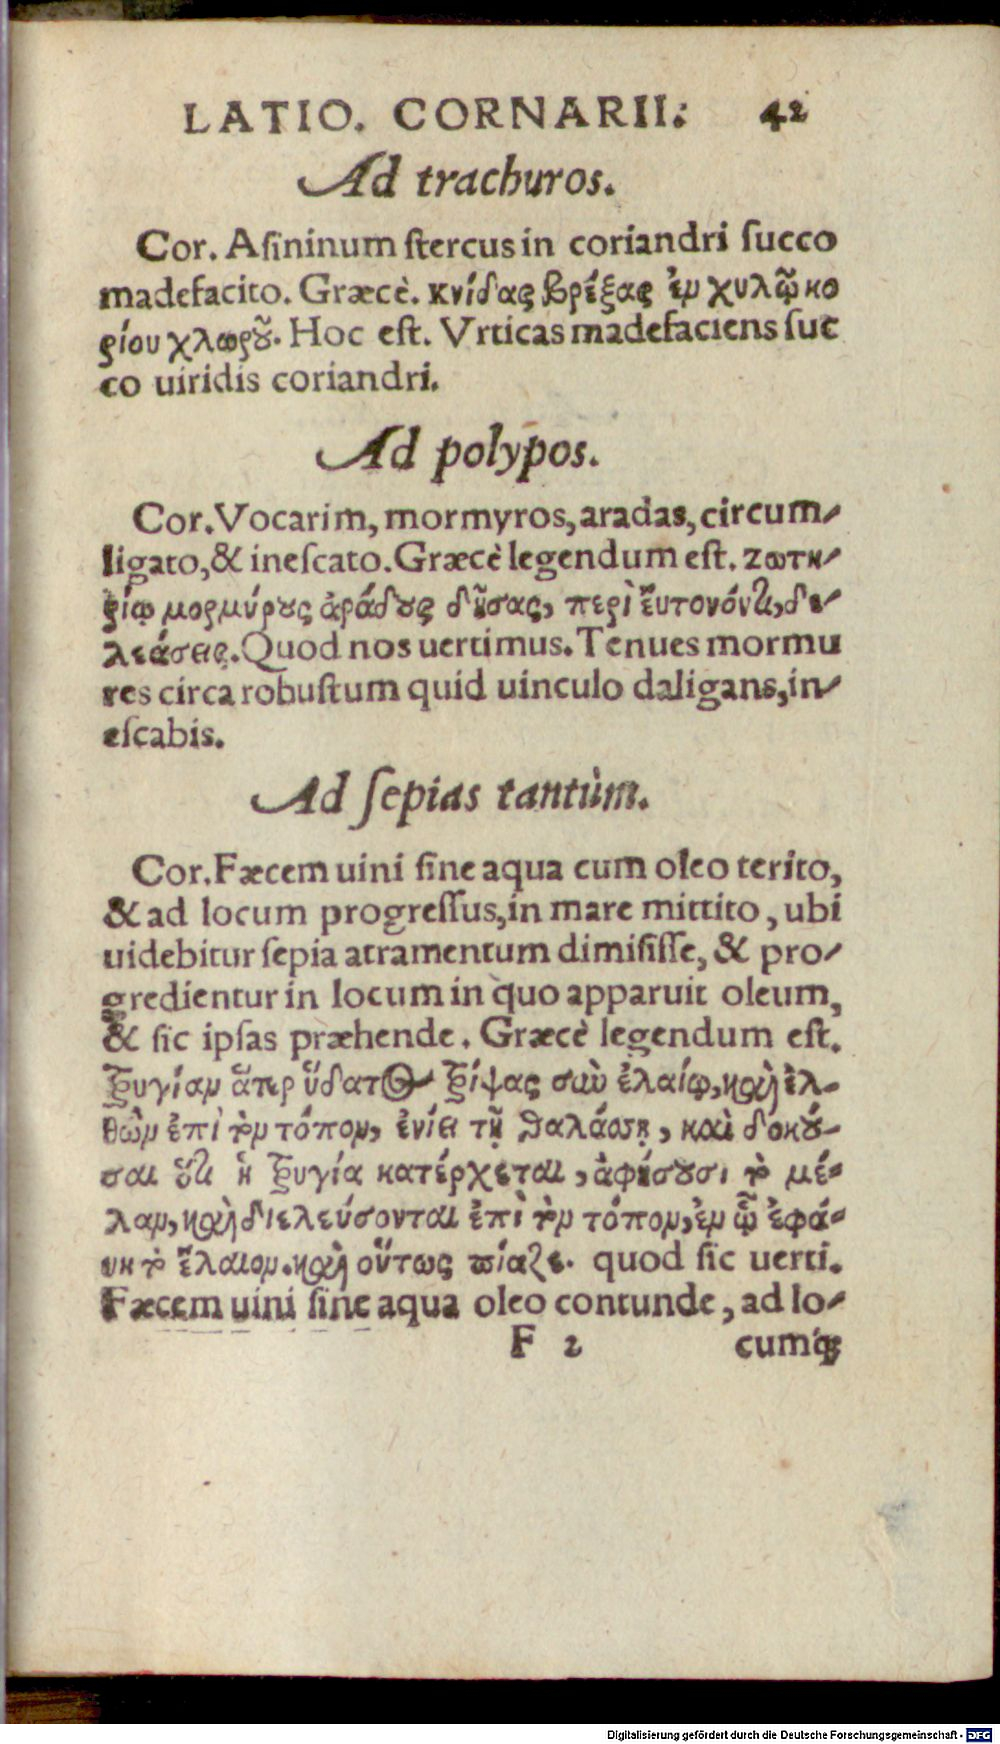 LATIO. CORNARII: 42
Ad trachuros.
Cor. Asininum stercus in coriandri succo
madefacito. Græcè. κνίδας βρέξας ἐν χυλῷ κο
ρίου χλωροῦ. Hoc est. Vrticas madefaciens suc
co uiridis coriandri.
Ad polypos.
Cor. Vocarim, mormyros, aradas, circum-
ligato, & inescato. Græcè legendum est. ζωτι-
μορμύρους ἀράδους δήσας, περὶ ἔυτονόντι, δε-
λεάσεις. Quod nos uertimus. Tenues mormu
res circa robustum quid uinculo daligans, in-
escabis.
Ad sepias tantùm.
Cor. Fæcem uini sine aqua cum oleo terito,
& ad locum progressus, in mare mittito, ubi
uidebitur sepia atramentum dimisisse, & pro-
gredientur in locum in quo apparuit oleum,
& sic ipsas præhende. Græcè legendum est.
ξυγίαν ἄτερ ὕδατος τρίψας σὺν ἐλαίῳ, καὶ ἐλ-
θὼν ἐπὶ τὸν τόπον, ἐνίει τῇ θαλάσσῃ, καὶ δοκοῦ-
σαι ὅτι ἡ ξυγία κατέρχεται, ἀφήσουσι τὸ μέ-
λαν, καὶ διελεύσονται ἐπὶ τὸν τόπον, ἐν ᾧ ἐφά-
νη τὸ ἔλαιον. καὶ οὕτως πίαζε. quod sic uerti.
Fæcem uini sine aqua oleo contunde, ad lo-
F 2 cumq́;
Digitalisierung gefördert durch die Deutsche Forschungsgemeinschaft - DFG